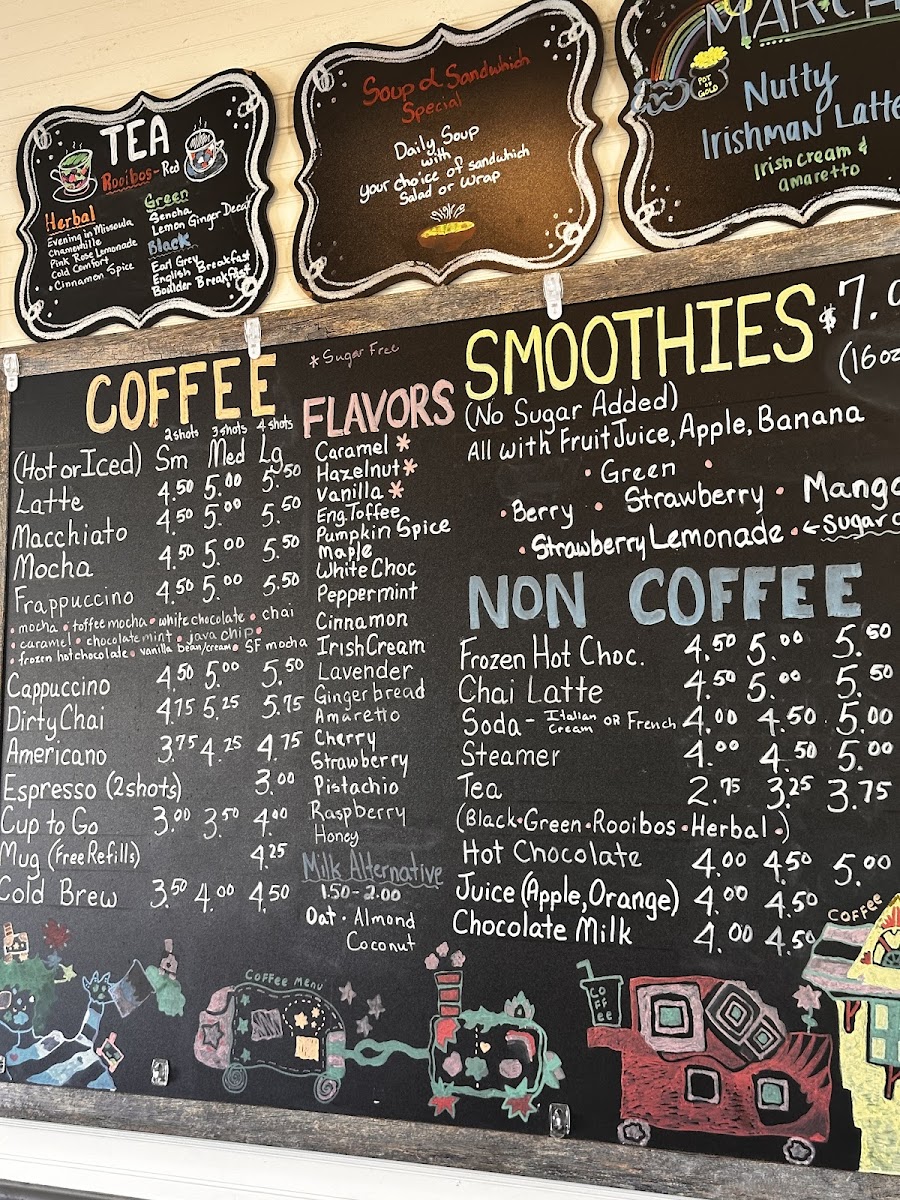 TEA
Rooibos - Red
Herbal
Evening in Missoula
Chamomille
Pink Rose Lemonade
Cold Comfort
Cinnamon Spice
Green
Sencha
Lemon Ginger Decaf
Black
Earl Grey
English Breakfast
Boulder Breakfast
Soup & Sandwhich
Special
Daily Soup
with
your choice of sandwhich
Salad or Wrap
POT OF GOLD
Nutty
Irishman Latte
Irish cream &
amaretto
COFFEE
2 shots 3 shots 4 shots
(Hot or Iced) Sm Med Lg
Latte 4.50 5.00 5.50
Macchiato 4.50 5.00 5.50
Mocha 4.50 5.00 5.50
Frappuccino 4.50 5.00 5.50
• mocha • toffee mocha • white chocolate • chai
• caramel • chocolate mint • java chip •
• frozen hot chocolate • vanilla bean/creme • SF mocha
Cappuccino 4.50 5.00 5.50
Dirty Chai 4.75 5.25 5.75
Americano 3.75 4.25 4.75
Espresso (2 shots) 3.00
Cup to Go 3.00 3.50 4.00
Mug (Free Refills) 4.25
Cold Brew 3.50 4.00 4.50
* Sugar Free
FLAVORS
Caramel *
Hazelnut *
Vanilla *
Eng. Toffee
Pumpkin Spice
Maple
White Choc
Peppermint
Cinnamon
Irish Cream
Lavender
Gingerbread
Amaretto
Cherry
Strawberry
Pistachio
Raspberry
Honey
Milk Alternative
1.50 - 2.00
Oat • Almond
Coconut
SMOOTHIES
(No Sugar Added)
All with Fruit Juice, Apple, Banana
• Green •
• Berry • Strawberry • Mango
• Strawberry Lemonade • ←
NON COFFEE
Frozen Hot Choc. 4.50 5.00 5.50
Chai Latte 4.50 5.00 5.50
Soda - Italian Cream OR French 4.00 4.50 5.00
Steamer 4.00 4.50 5.00
Tea 2.75 3.25 3.75
(Black • Green • Rooibos • Herbal •)
Hot Chocolate 4.00 4.50 5.00
Juice (Apple, Orange) 4.00 4.50
Chocolate Milk 4.00 4.50
COFFEE MENU
COFFEE
COFFEE